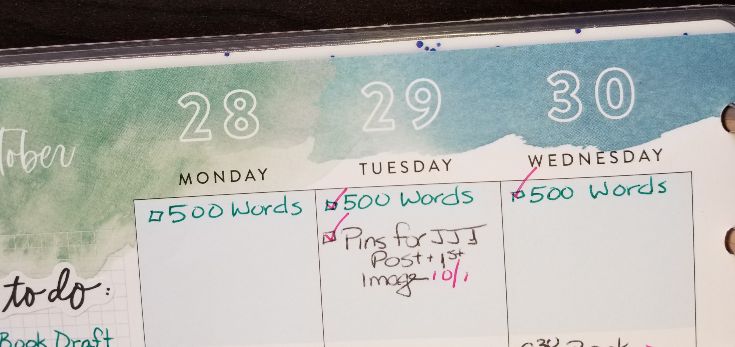 28 29 30
MONDAY TUESDAY WEDNESDAY
500 Words
500 Words
Pins for JJJ
Post + 1st
Image 10/1
500 Words
to do:
Book Draft